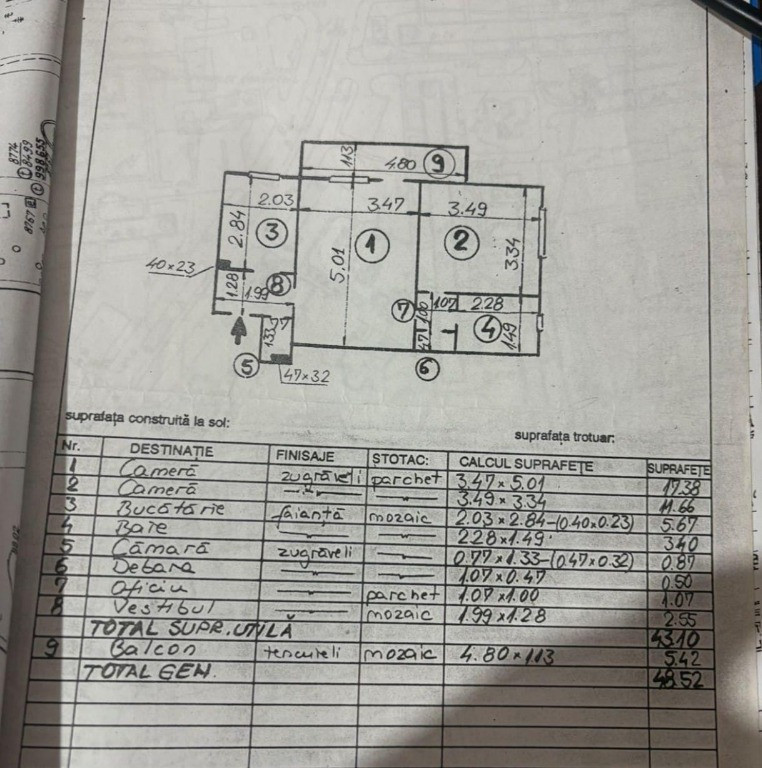 8774
① 8499
8767 ② ① 998655
113
480
9
2.03
3.47
3.49
2.84
3
1
2
3.34
5.01
40×23
1.28
1.99
8
7
1.00
102
228
4
149
77
1.33
47
5
47×32
6
suprafaţa construită la sol:
suprafaţa trotuar:
Nr. DESTINAŢIE FINISAJE STOTAC: CALCUL SUPRAFEŢE SUPRAFEŢE
1 Cameră zugrăveli parchet 3.47×5.01 17.38
2 Cameră 3.49×3.34 11.66
3 Bucătărie faianţă mozaic 2.03×2.84-(0.40×0.23) 5.67
4 Baie 228×1.49 340
5 Cămară zugrăveli 0.77×1.33-(0.47×0.32) 0.87
6 Debara 1.07×0.47 0.50
7 Oficiu parchet 1.07×1.00 1.07
8 Vestibul mozaic 1.99×1.28 2.55
TOTAL SUPR.UTILĂ 43.10
9 Balcon tencuieli mozaic 4.80×113 5.42
TOTAL GEN. 48.52